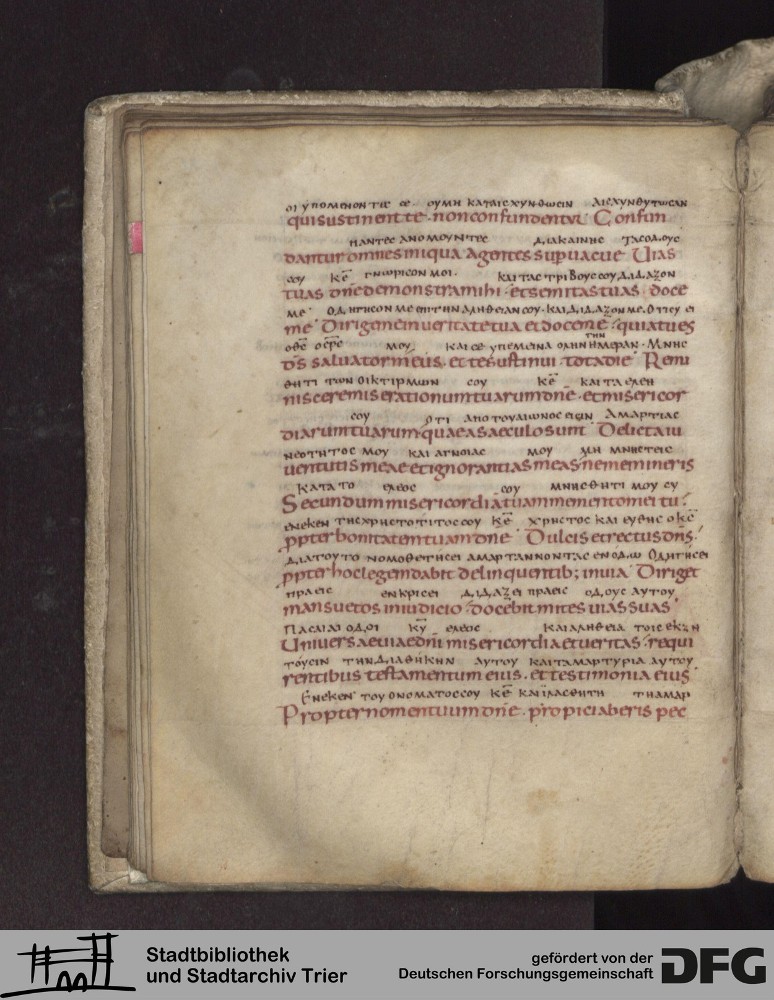 οι υπομενοντες σε · ου μη καταισχυνθωσιν αισχυνθητωσαν
qui sustinent te · non confundentur Confun
παντες ανομουντες διακαινης τας οδους
dantur omnes iniqua agentes supuacue Uias
σου κ̅ε̅ γνωρισον μοι · και τας τριβους σου διδαξον
tuas dn̅e demonstra mihi · et semitas tuas doce
με οδηγησον με επι την αληθειαν σου · και διδαξον με · οτι συ ει
me Dirige me in ueritate tua et doce me · quia tu es
ο θ̅ς̅ ο σ̅ρ̅ μου και σε υπεμεινα ολην την ημεραν · μνης
d̅s̅ saluator meus · et te sustinui tota die Remi
θητι των οικτιρμων σου κ̅ε̅ και τα ελεη
niscere miserationum tuarum dn̅e · et misericor
σου οτι απο του αιωνος εισιν αμαρτιας
diarum tuarum quae a saeculo sunt Delicta iu
νεοτητος μου και αγνοιας μου μη μνησθεις
uentutis meae et ignorantias meas ne memineris
κατα το ελεος σου μνησθητι μου συ
Secundum misericordia̅ tuam memento mei tu ·
ενεκεν της χρηστοτιτος σου κ̅ε̅ χρηστος και ευθης ο κ̅ς̅
ppter bonitatem tuam dn̅e Dulcis et rectus dn̅s ·
δια τουτο νομοθετησει αμαρτανοντας εν οδω οδηγησει
ppter hoc legem dabit delinquentib; in uia Diriget
πραεις εν κρισει διδαξει πραεις οδους αυτου
mansuetos in iudicio · docebit mites uias suas
πασαι αι οδοι κ̅υ̅ ελεος και αληθεια τοις εκζη
Uniuersae uiae dn̅i misericordia et ueritas · requi
τουσιν την διαθηκην αυτου και τα μαρτυρια αυτου
rentibus testamentum eius · et testimonia eius
ενεκεν του ονοματος σου κ̅ε̅ και ιλασθητη τη αμαρ
Propter nomen tuum dn̅e · propiciaberis pec
Stadtbibliothek
und Stadtarchiv Trier
gefördert von der
Deutschen Forschungsgemeinschaft
DFG